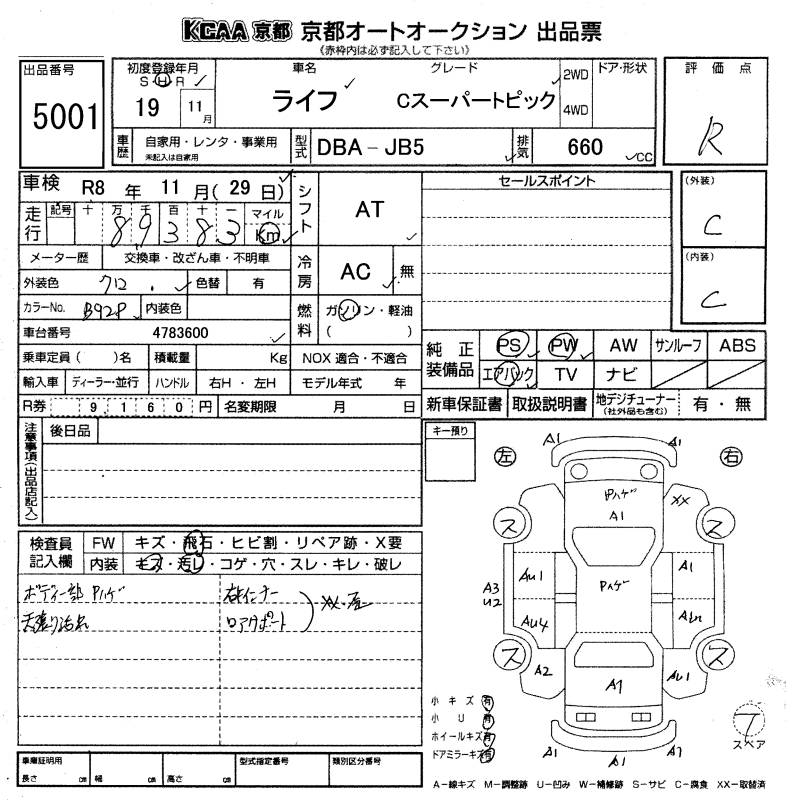 KCAA 京都 京都オートオークション 出品票
《赤枠内は必ず記入して下さい》
出品番号
5001
初度登録年月
S H R
19 11月
車名
ライフ
グレード
Cスーパートピック
2WD
4WD
ドア・形状
評価点
R
車歴
自家用・レンタ・事業用
未記入は自家用
型式
DBA-JB5
排気
660 CC
車検 R8 年 11 月( 29 日)
シフト
AT
セールスポイント
(外装)
C
(内装)
C
走行
記号 十 万 千 百 十 一 マイル
8 9 3 8 3 Km
メーター歴 交換車・改ざん車・不明車
冷房
AC 無
外装色 クロ 色替 有
カラーNo. B92P 内装色
燃料
ガソリン・軽油
( )
車台番号 4783600
乗車定員( )名 積載量 Kg NOX 適合・不適合
輸入車 ディーラー・並行 ハンドル 右H・左H モデル年式 年
R券 9,160円 名変期限 月 日
純正装備品
PS PW AW サンルーフ ABS
エアバック TV ナビ
新車保証書 取扱説明書 地デジチューナー(社外品も含む) 有・無
注意事項(出品店記入)
後日品
キー預り
検査員記入欄
FW キズ・飛石・ヒビ割・リペア跡・X要
内装 キズ・汚レ・コゲ・穴・スレ・キレ・破レ
ボディー部 Pハゲ
天張り汚れ
右インナー
ロアサポート
XX・歪
左
右
A1
A1
Pハゲ
A1
XX
ス
ス
AU1
Pハゲ
A1
A3
U2
AU4
ス
ス
A2
A1
AU1
A1
A1
A1
小キズ 有
小U 有
ホイールキズ有
ドアミラーキズ有
T
スペア
車庫証明用
長さ cm 幅 cm 高さ cm
型式指定番号
類別区分番号
A-線キズ M-調整跡 U-凹み W-補修跡 S-サビ C-腐食 XX-取替済